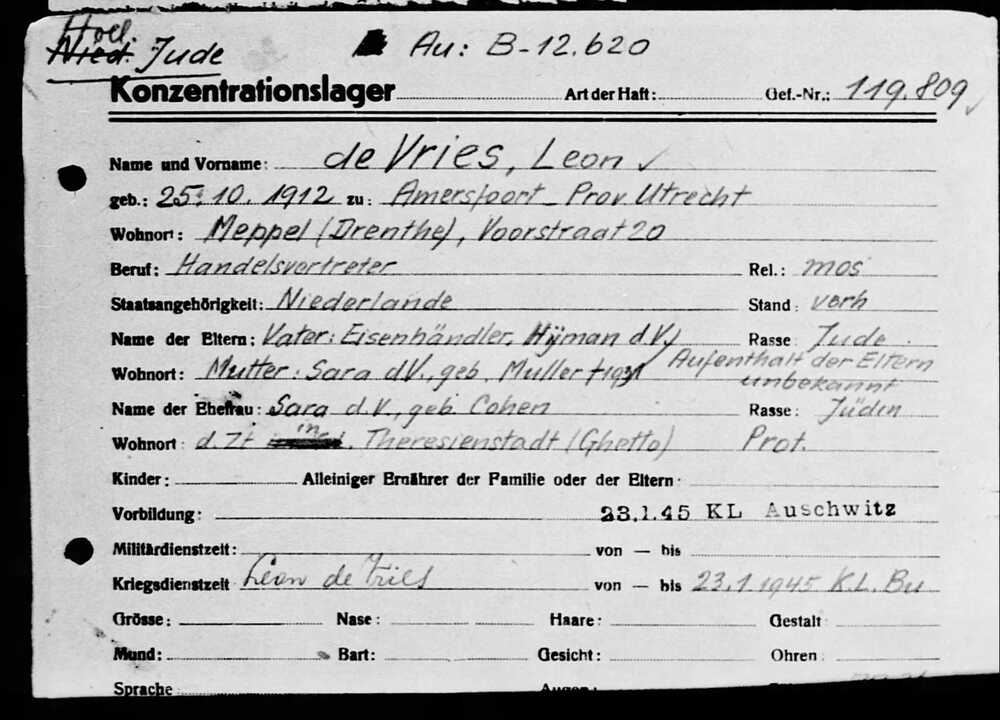 Holl.
Nied. Jude
Au: B-12.620
Konzentrationslager Art der Haft: Gef.-Nr.: 119.809
Name und Vorname: de Vries, Leon
geb.: 25.10.1912 zu: Amersfoort Prov. Utrecht
Wohnort: Meppel (Drenthe), Voorstraat 20
Beruf: Handelsvertreter Rel.: mos
Staatsangehörigkeit: Niederlande Stand: verh
Name der Eltern: Vater: Eisenhändler, Hijman d.V. Rasse: Jude
Wohnort: Mutter: Sara d.V., geb. Muller Aufenthalt der Eltern
unbekannt
Name der Ehefrau: Sara d.V., geb. Cohen Rasse: Jüdin
Wohnort: d. Zt in Theresienstadt (Ghetto) Prot.
Kinder: Alleiniger Ernährer der Familie oder der Eltern:
Vorbildung: 23.1.45 KL Auschwitz
Militärdienstzeit: von — bis
Kriegsdienstzeit Leon de Vries von — bis 23.1.1945 K.L. Bu
Grösse: Nase: Haare: Gestalt:
Mund: Bart: Gesicht: Ohren:
Sprache Augen: